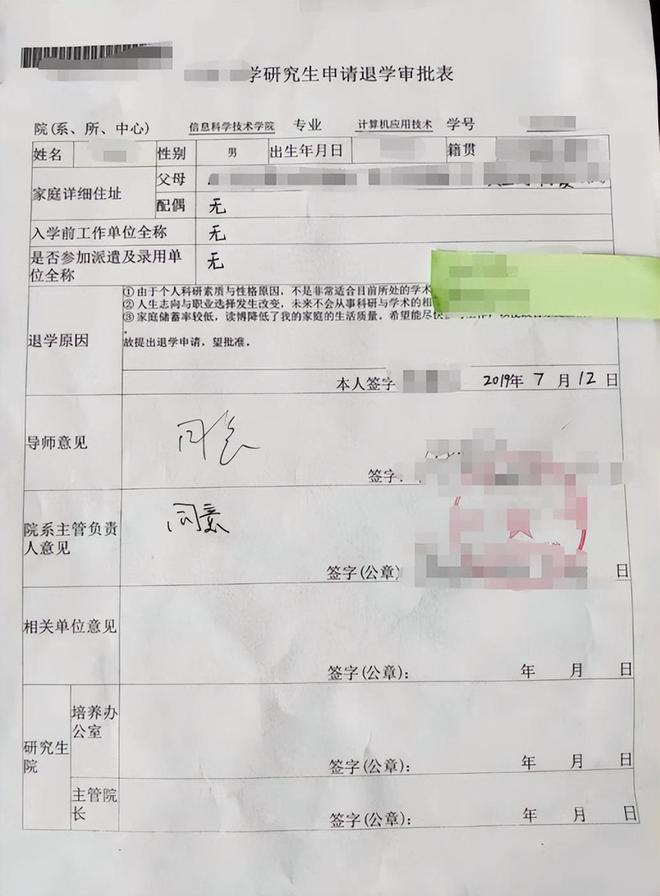 学研究生申请退学审批表
院(系、所、中心) 信息科学技术学院 专业 计算机应用技术 学号
姓名 性别 男 出生年月日 籍贯
家庭详细住址 父母
配偶 无
入学前工作单位全称 无
是否参加派遣及录用单
位全称 无
退学原因
① 由于个人科研素质与性格原因，不是非常适合目前所处的学术
② 人生志向与职业选择发生改变，未来不会从事科研与学术的相
③ 家庭储蓄率较低，读博降低了我的家庭的生活质量。希望能尽快
故提出退学申请，望批准。
本人签字 2019年 7 月 12 日
导师意见 同意
签字
院系主管负责
人意见 同意
签字(公章) 日
相关单位意见
签字(公章): 年 月 日
研究生
院
培养办
公室
签字(公章): 年 月 日
主管院
长
签字(公章): 年 月 日